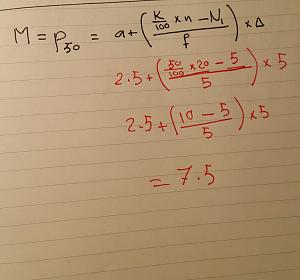 M = P50 = a + ( (K/100 × n − N1) / f ) × Δ
2.5 + ( (50/100 × 20 − 5) / 5 ) × 5
2.5 + ( (10 − 5) / 5 ) × 5
= 7.5